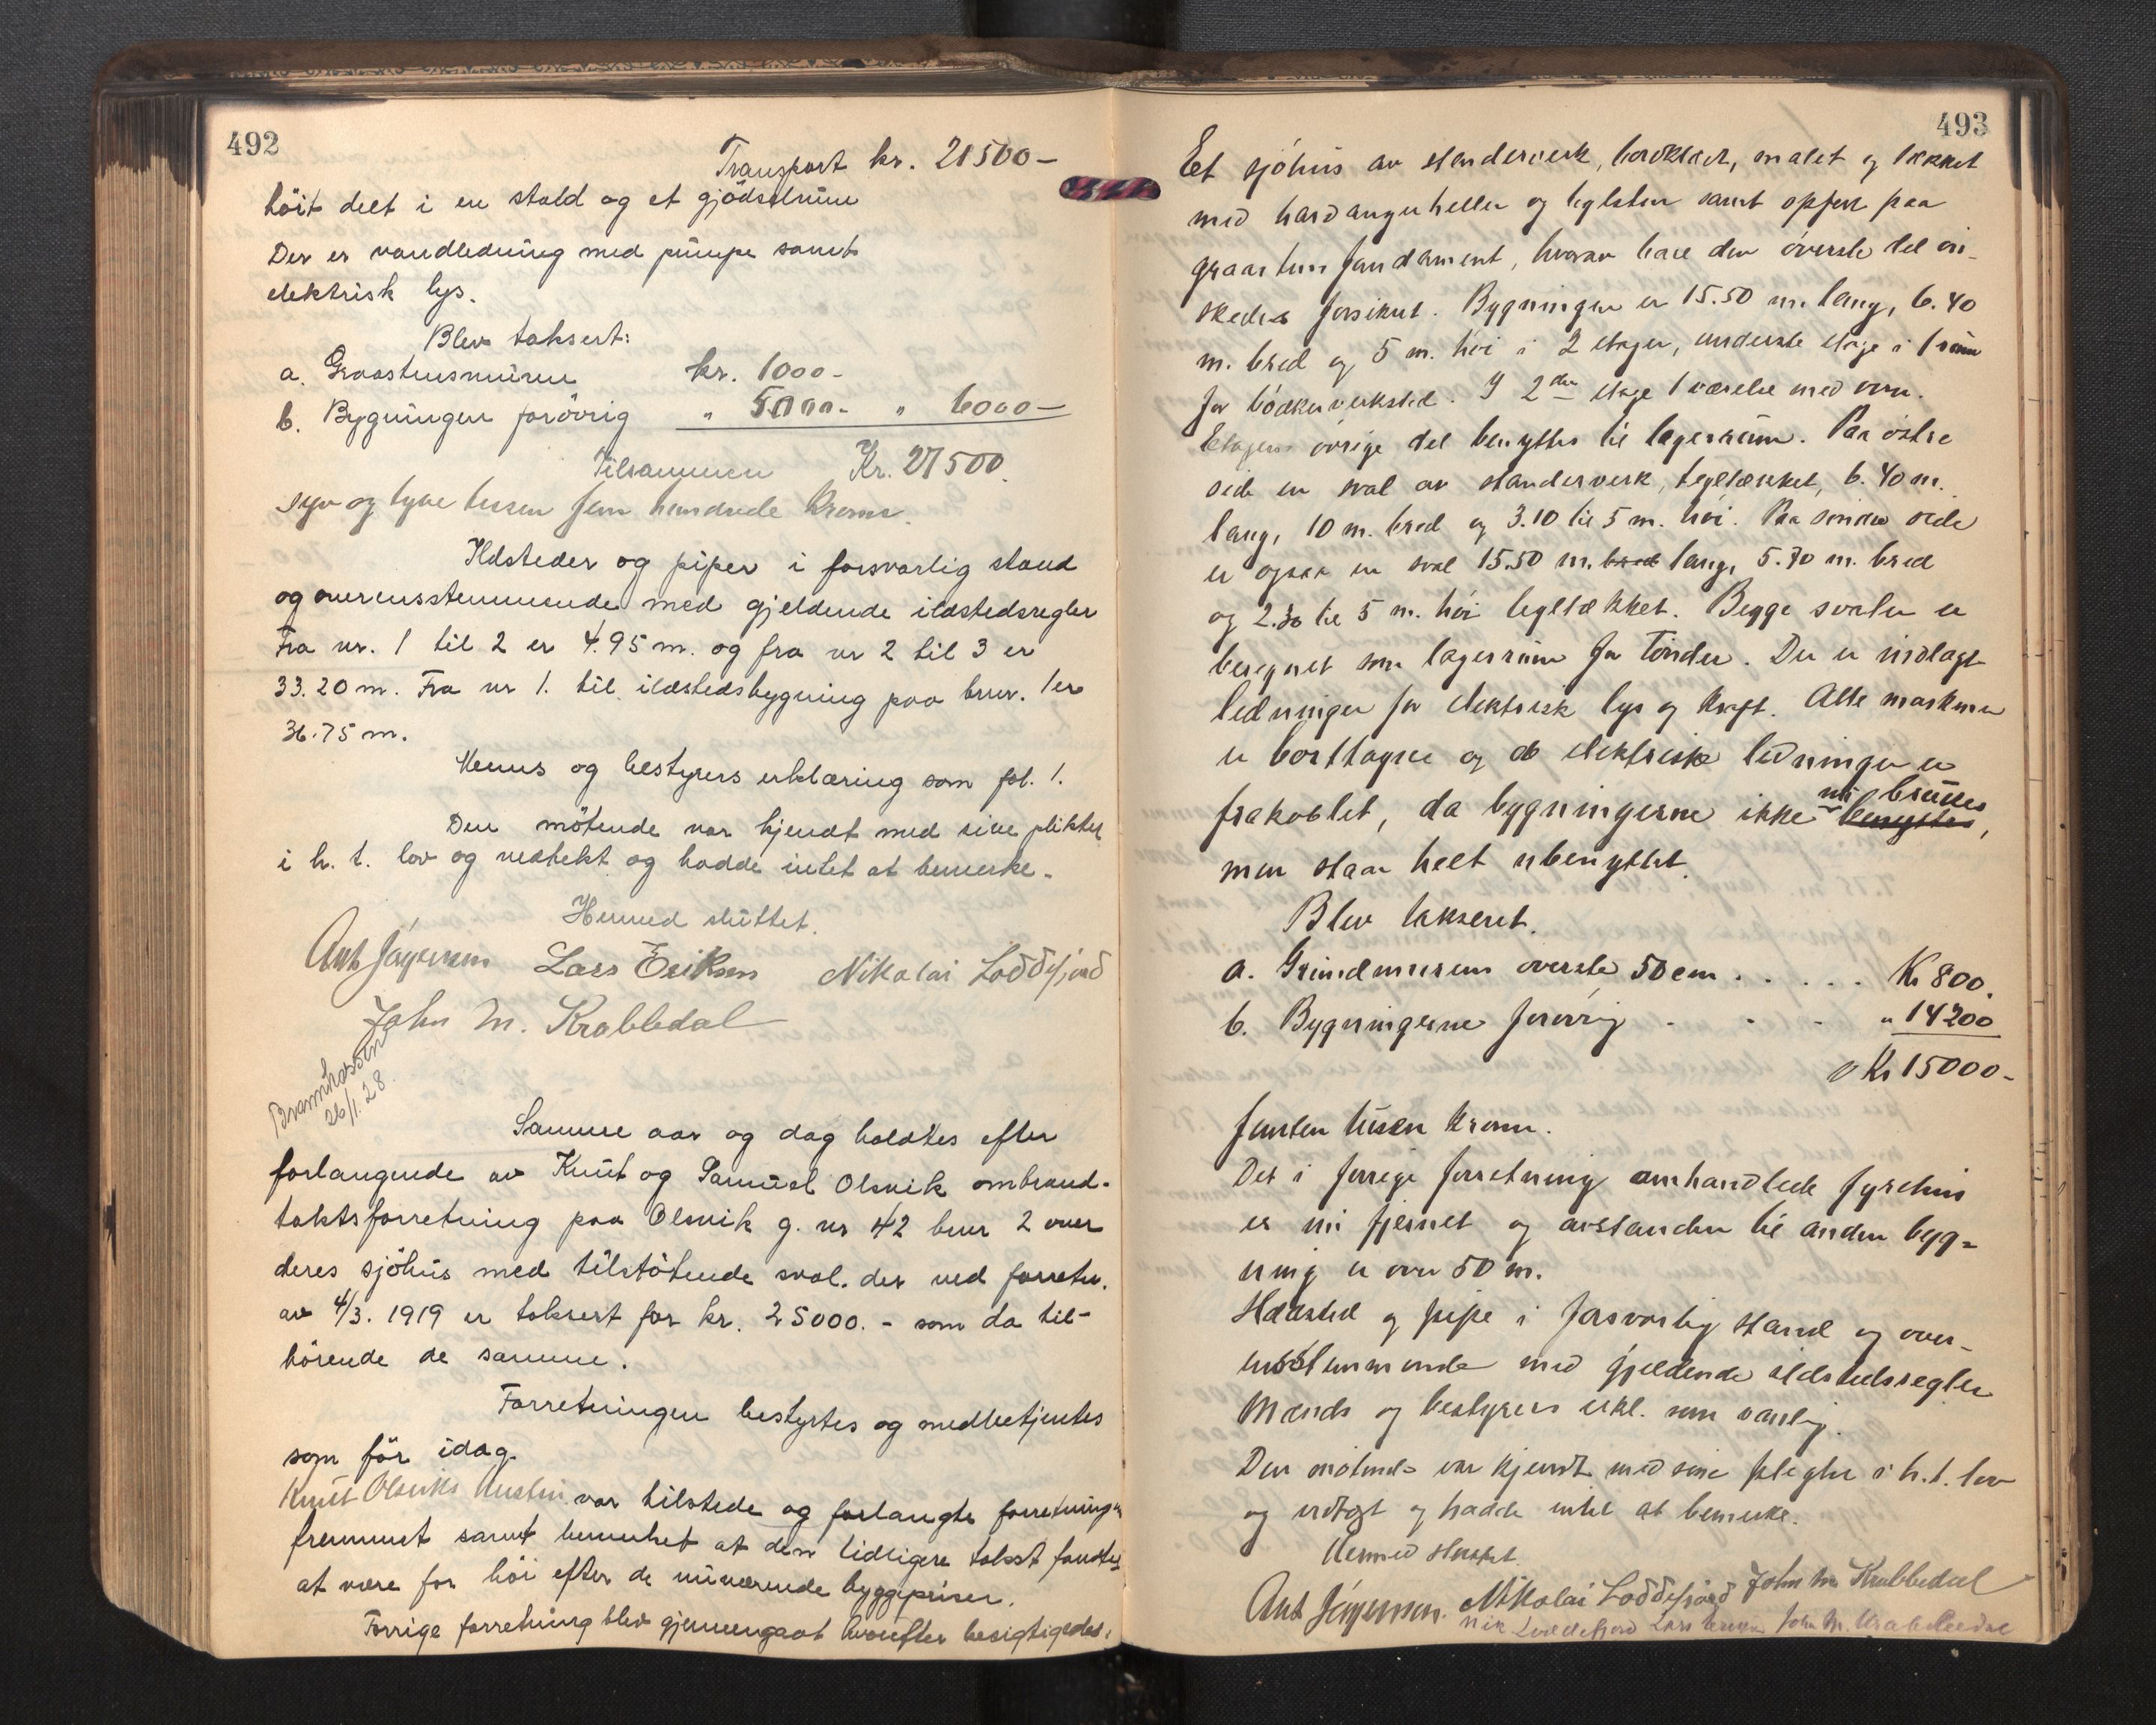 492
Transport kr. 21500-
höit delt i en stald og et gjödselrum
Der er vandledning med pumpe samt
elektrisk lys.
Blev taksert:
a. Graastensmuren kr. 1000-
b. Bygningen forövrig " 5000- " 6000-
Tilsammen Kr. 27500.
syv og tyve tusen fem hundrede Kroner.
Ildsteder og piper i forsvarlig stand
og overensstemmende med gjeldende ildstedsregler
Fra nr. 1 til 2 er 4.95 m. og fra nr 2 til 3 er
33.20 m. Fra nr 1. til ildstedsbygning paa brnr. 1 er
36.75 m.
Menns og bestyrers erklæring som fol. 1.
Den mötende var kjendt med sine plikter
i h. t. lov og vedtekt og hadde intet at bemerke.
Hermed sluttet.
Ant Jörgensen Lars Eriksen Nikolai Loddefjord
John M. Krabbedal
Brannkassen
26/1.28.
Samme aar og dag holdtes efter
forlangende av Knut og Samuel Olsvik ombrand-
takstforretning paa Olsvik g. nr 42 bnr 2 over
deres sjöhus med tilstötende sval. der ved forretn.
av 4/3. 1919 er taksert for kr. 25000.- som da til-
hörende de samme.
Forretningen bestyrtes og medbetjentes
som för idag.
Knut Olsviks Hustru var tilstede og forlangte forretningen
fremmet samt bemerket at den tidligere takst fandtes
at være for höi efter de nuværende byggepriser.
Forrige forretning blev gjennemgaat hvorefter besigtigedes:
493
Et sjöhus av stenderverk, bordklædt, malet og tækket
med hardangerheller og teglsten samt opfört paa
graastens fundament, hvorav bare den överste del ön-
skedes forsikret. Bygningen er 15.50 m. lang, 6.40
m. bred og 5 m. höi i 2 etager, underste etage i 1 rum
for bödkerverksted. I 2den etage 1 værelse med ovn.
Etagens övrige del benyttes til lagerrum. Paa östre
side en sval av stenderverk, tegltækket, 6.40 m.
lang, 10 m. bred og 3.10 til 5 m. höi. Paa söndre side
er ogsaa en sval 15.50 m. bred lang, 5.70 m. bred
og 2.30 til 5 m. höi tegltækket. Begge svaler er
beregnet som lagerrum for Tönder. Der er indlagt
ledninger for elektrisk lys og kraft. Alle maskiner
er borttagne og de elektriske ledninger er
frakoblet, da bygningerne ikke benyttes, nu brukes
men staar helt ubenyttet.
Blev takseret.
a. Grundmurens överste 50 cm. . . . . Kr 800.
b. Bygningerne forövrig - - - " 14200
Kr 15000-
Femten tusen Kroner.
Det i forrige forretning omhandlede fyrehus
er nu fjernet og avstanden til anden byg-
ning er over 50 m.
Ildsted og pipe i forsvarlig stand og over-
ensstemmende med gjeldende ildstedsregler
Mænds og bestyrers erkl. som vanlig.
Den mötende var kjendt med sine pligter i h. t. lov
og vedtægt og hadde intet at bemerke.
Hermed sluttet.
Ant Jörgensen. Nikolai Loddefjord John M. Krabbedal
Nik Loddefjord Lars Eriksen John M. Krabbedal